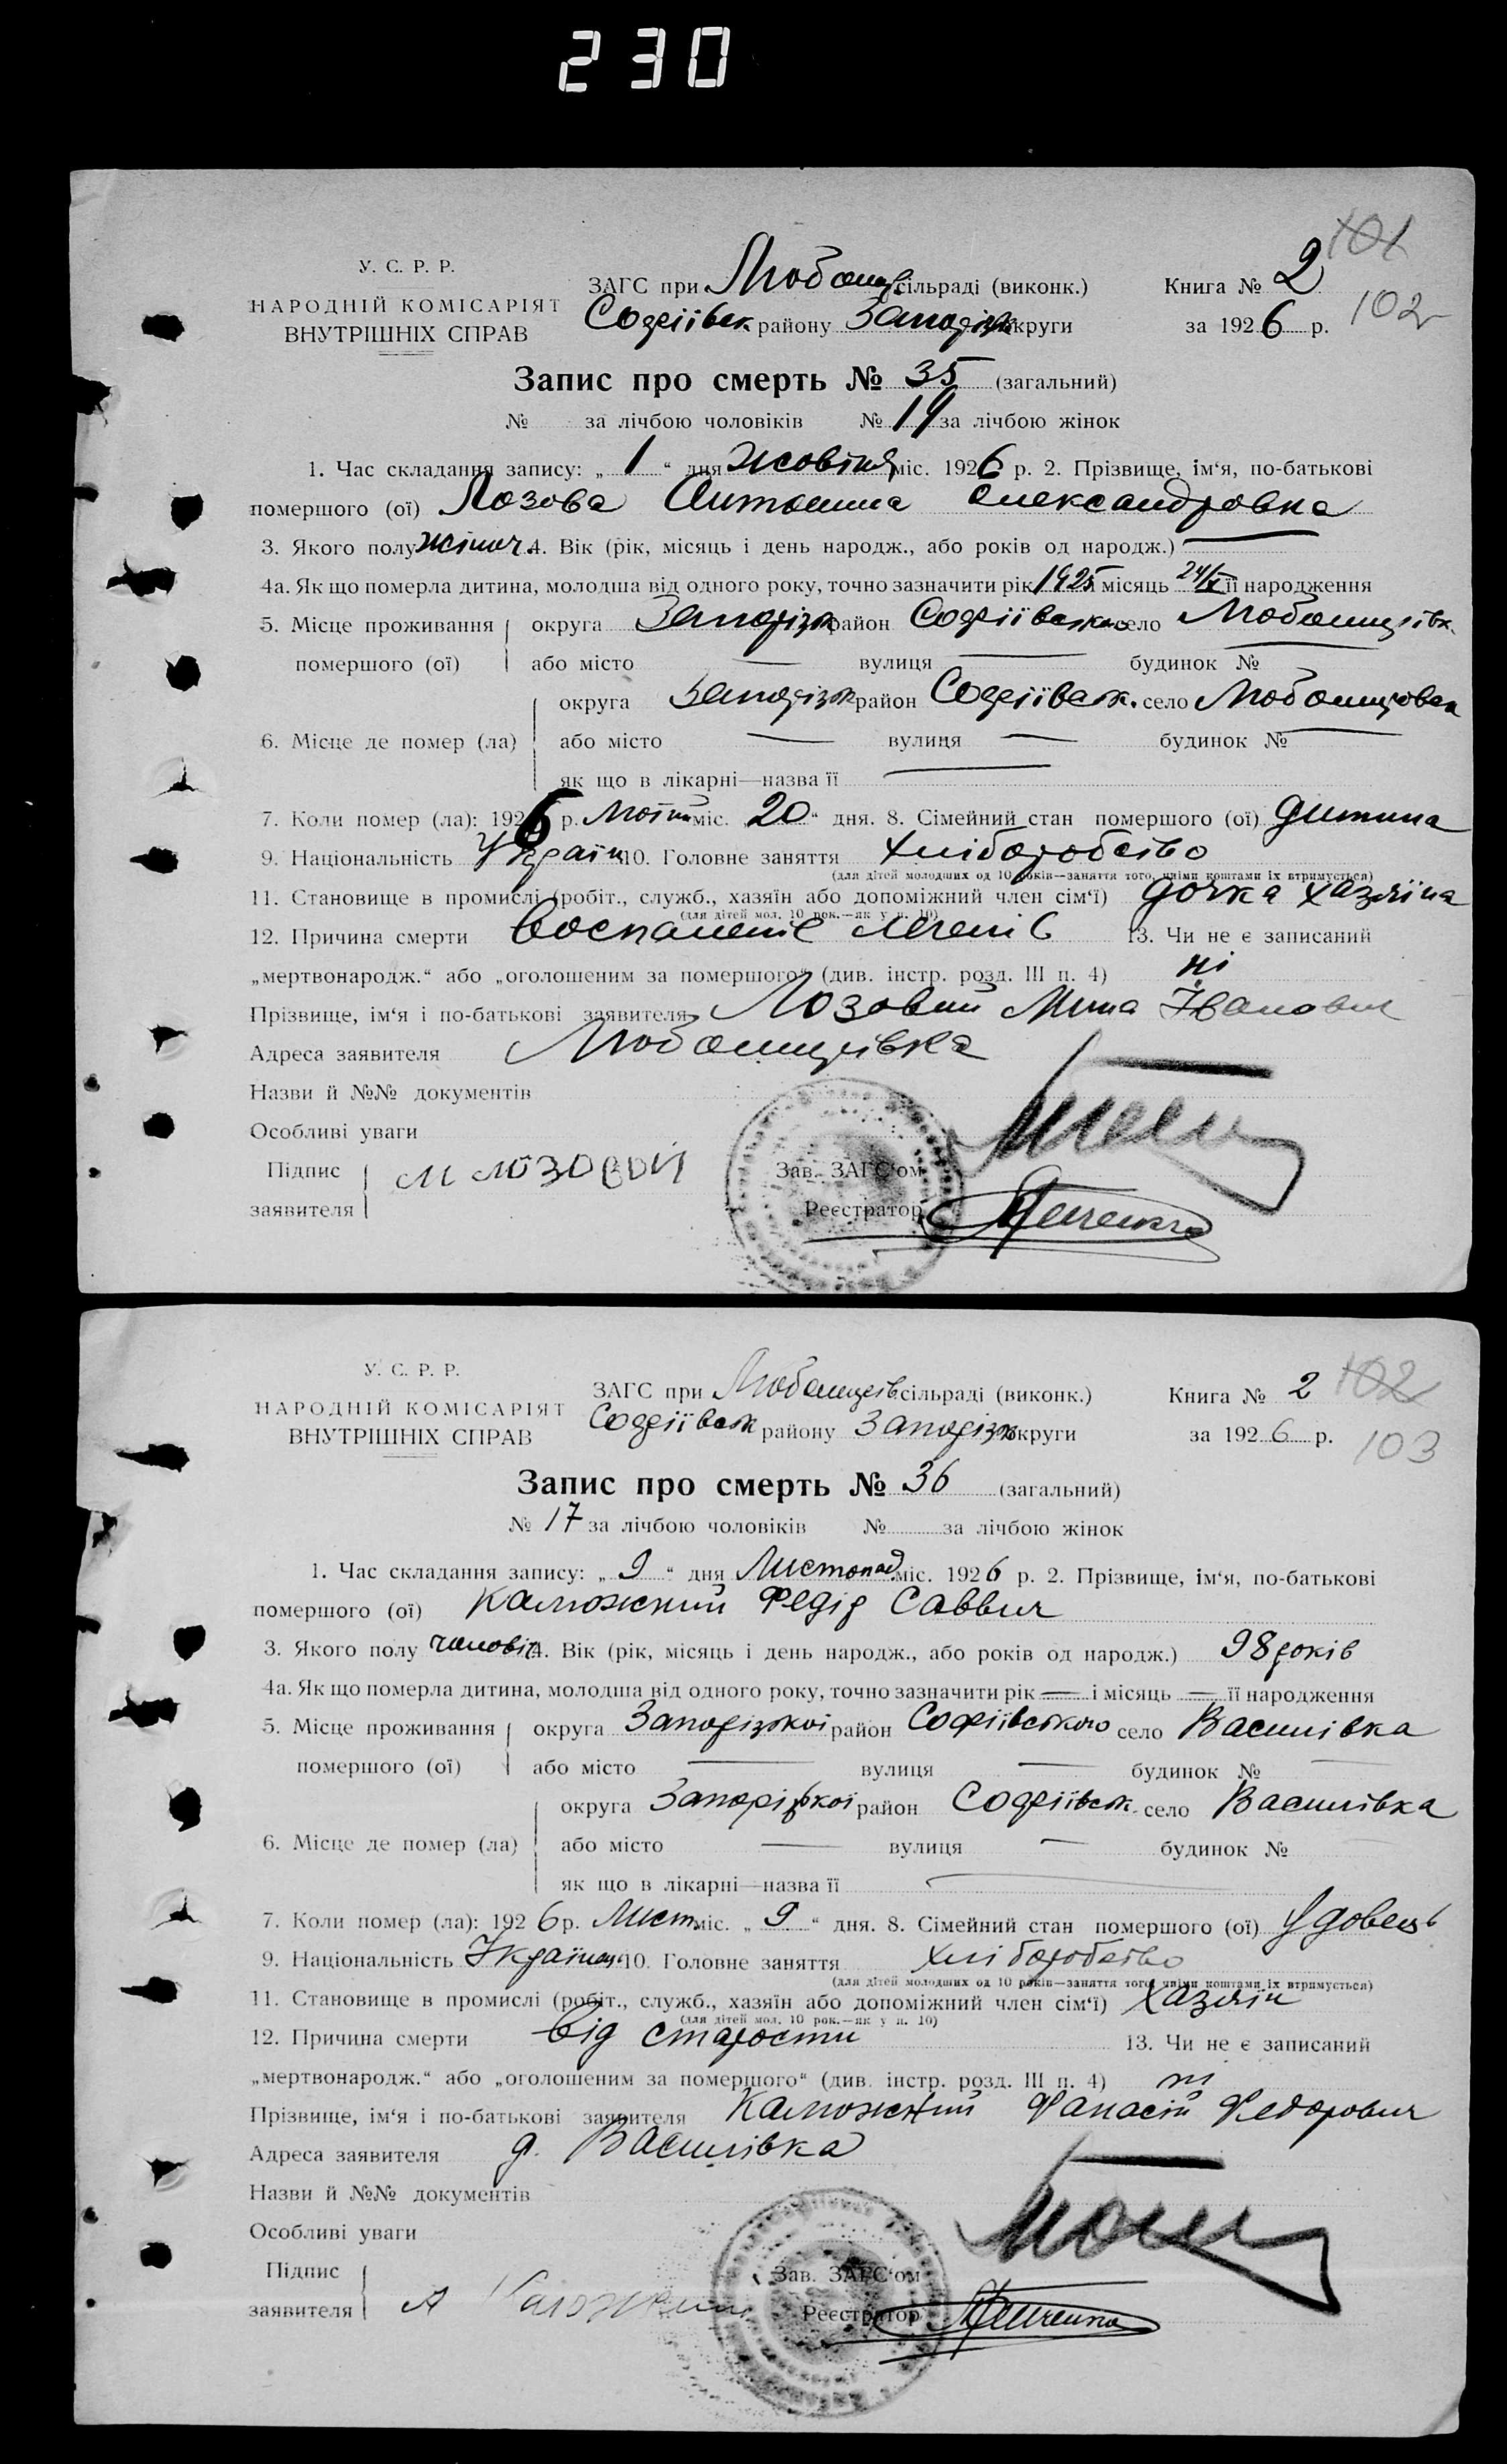 230
101
У. С. Р. Р.
ЗАГС при сільраді (виконк.) Книга № 2
НАРОДНІЙ КОМІСАРІЯТ
ВНУТРІШНІХ СПРАВ
Софіївськ. району Запоріз округи за 1926 р. 102
Запис про смерть № 35 (загальний)
№ за лічбою чоловіків № 19 за лічбою жінок
1. Час складання запису: „ 1 “ дня жовтня міс. 1926 р. 2. Прізвище, ім‘я, по-батькові
помершого (ої) Лозова Антонина Олександровна
3. Якого полу жіноч. 4. Вік (рік, місяць і день народж., або років од народж.) —
4а. Як що померла дитина, молодша від одного року, точно зазначити рік 1925 місяць 24/X її народження
5. Місце проживання округа Запорізьк район Софіївськ село
помершого (ої) або місто — вулиця — будинок №
округа Запорізьк район Софіївськ. село
6. Місце де помер (ла) або місто — вулиця — будинок № —
як що в лікарні—назва її —
7. Коли помер (ла): 1926 р. Лютий міс. „ 20 “ дня. 8. Сімейний стан помершого (ої) дитина
9. Національність Україн 10. Головне заняття хліборобство
(для дітей молодших од 10 років—заняття того, чиїми коштами їх втримується)
11. Становище в промислі (робіт., служб., хазяїн або допоміжний член сім‘ї) дочка хазяїна
(для дітей мол. 10 рок.—як у п. 10)
12. Причина смерти воспаленіє легенів 13. Чи не є записаний
„мертвонародж.“ або „оголошеним за помершого“ (див. інстр. розд. III п. 4) ні
Прізвище, ім‘я і по-батькові заявителя Лозовий Мина Іванович
Адреса заявителя
Назви й №№ документів
Особливі уваги
Підпис М Лозовой Зав. ЗАГС‘ом
заявителя Реєстратор
102
У. С. Р. Р.
ЗАГС при сільраді (виконк.) Книга № 2
НАРОДНІЙ КОМІСАРІЯТ
ВНУТРІШНІХ СПРАВ
Софіївськ району Запорізь округи за 1926 р. 103
Запис про смерть № 36 (загальний)
№ 17 за лічбою чоловіків № за лічбою жінок
1. Час складання запису: „ 9 “ дня Листопад міс. 1926 р. 2. Прізвище, ім‘я, по-батькові
помершого (ої) Калюжний Федір Саввич
3. Якого полу чоловіч 4. Вік (рік, місяць і день народж., або років од народж.) 98 років
4а. Як що померла дитина, молодша від одного року, точно зазначити рік — і місяць — її народження
5. Місце проживання округа Запорізької район Софіївського село Василівка
помершого (ої) або місто — вулиця — будинок № —
округа Запорізької район Софіївськ. село Василівка
6. Місце де помер (ла) або місто — вулиця — будинок №
як що в лікарні—назва її —
7. Коли помер (ла): 1926 р. Лист міс. „ 9 “ дня. 8. Сімейний стан помершого (ої) Удовець
9. Національність Україн 10. Головне заняття хліборобство
(для дітей молодших од 10 років—заняття того, чиїми коштами їх втримується)
11. Становище в промислі (робіт., служб., хазяїн або допоміжний член сім‘ї) хазяїн
(для дітей мол. 10 рок.—як у п. 10)
12. Причина смерти Від старости 13. Чи не є записаний
„мертвонародж.“ або „оголошеним за помершого“ (див. інстр. розд. III п. 4) ні
Прізвище, ім‘я і по-батькові заявителя Калюжний Фанасій Федорович
Адреса заявителя д. Василівка
Назви й №№ документів
Особливі уваги
Підпис А Калюжний Зав. ЗАГС‘ом
заявителя Реєстратор